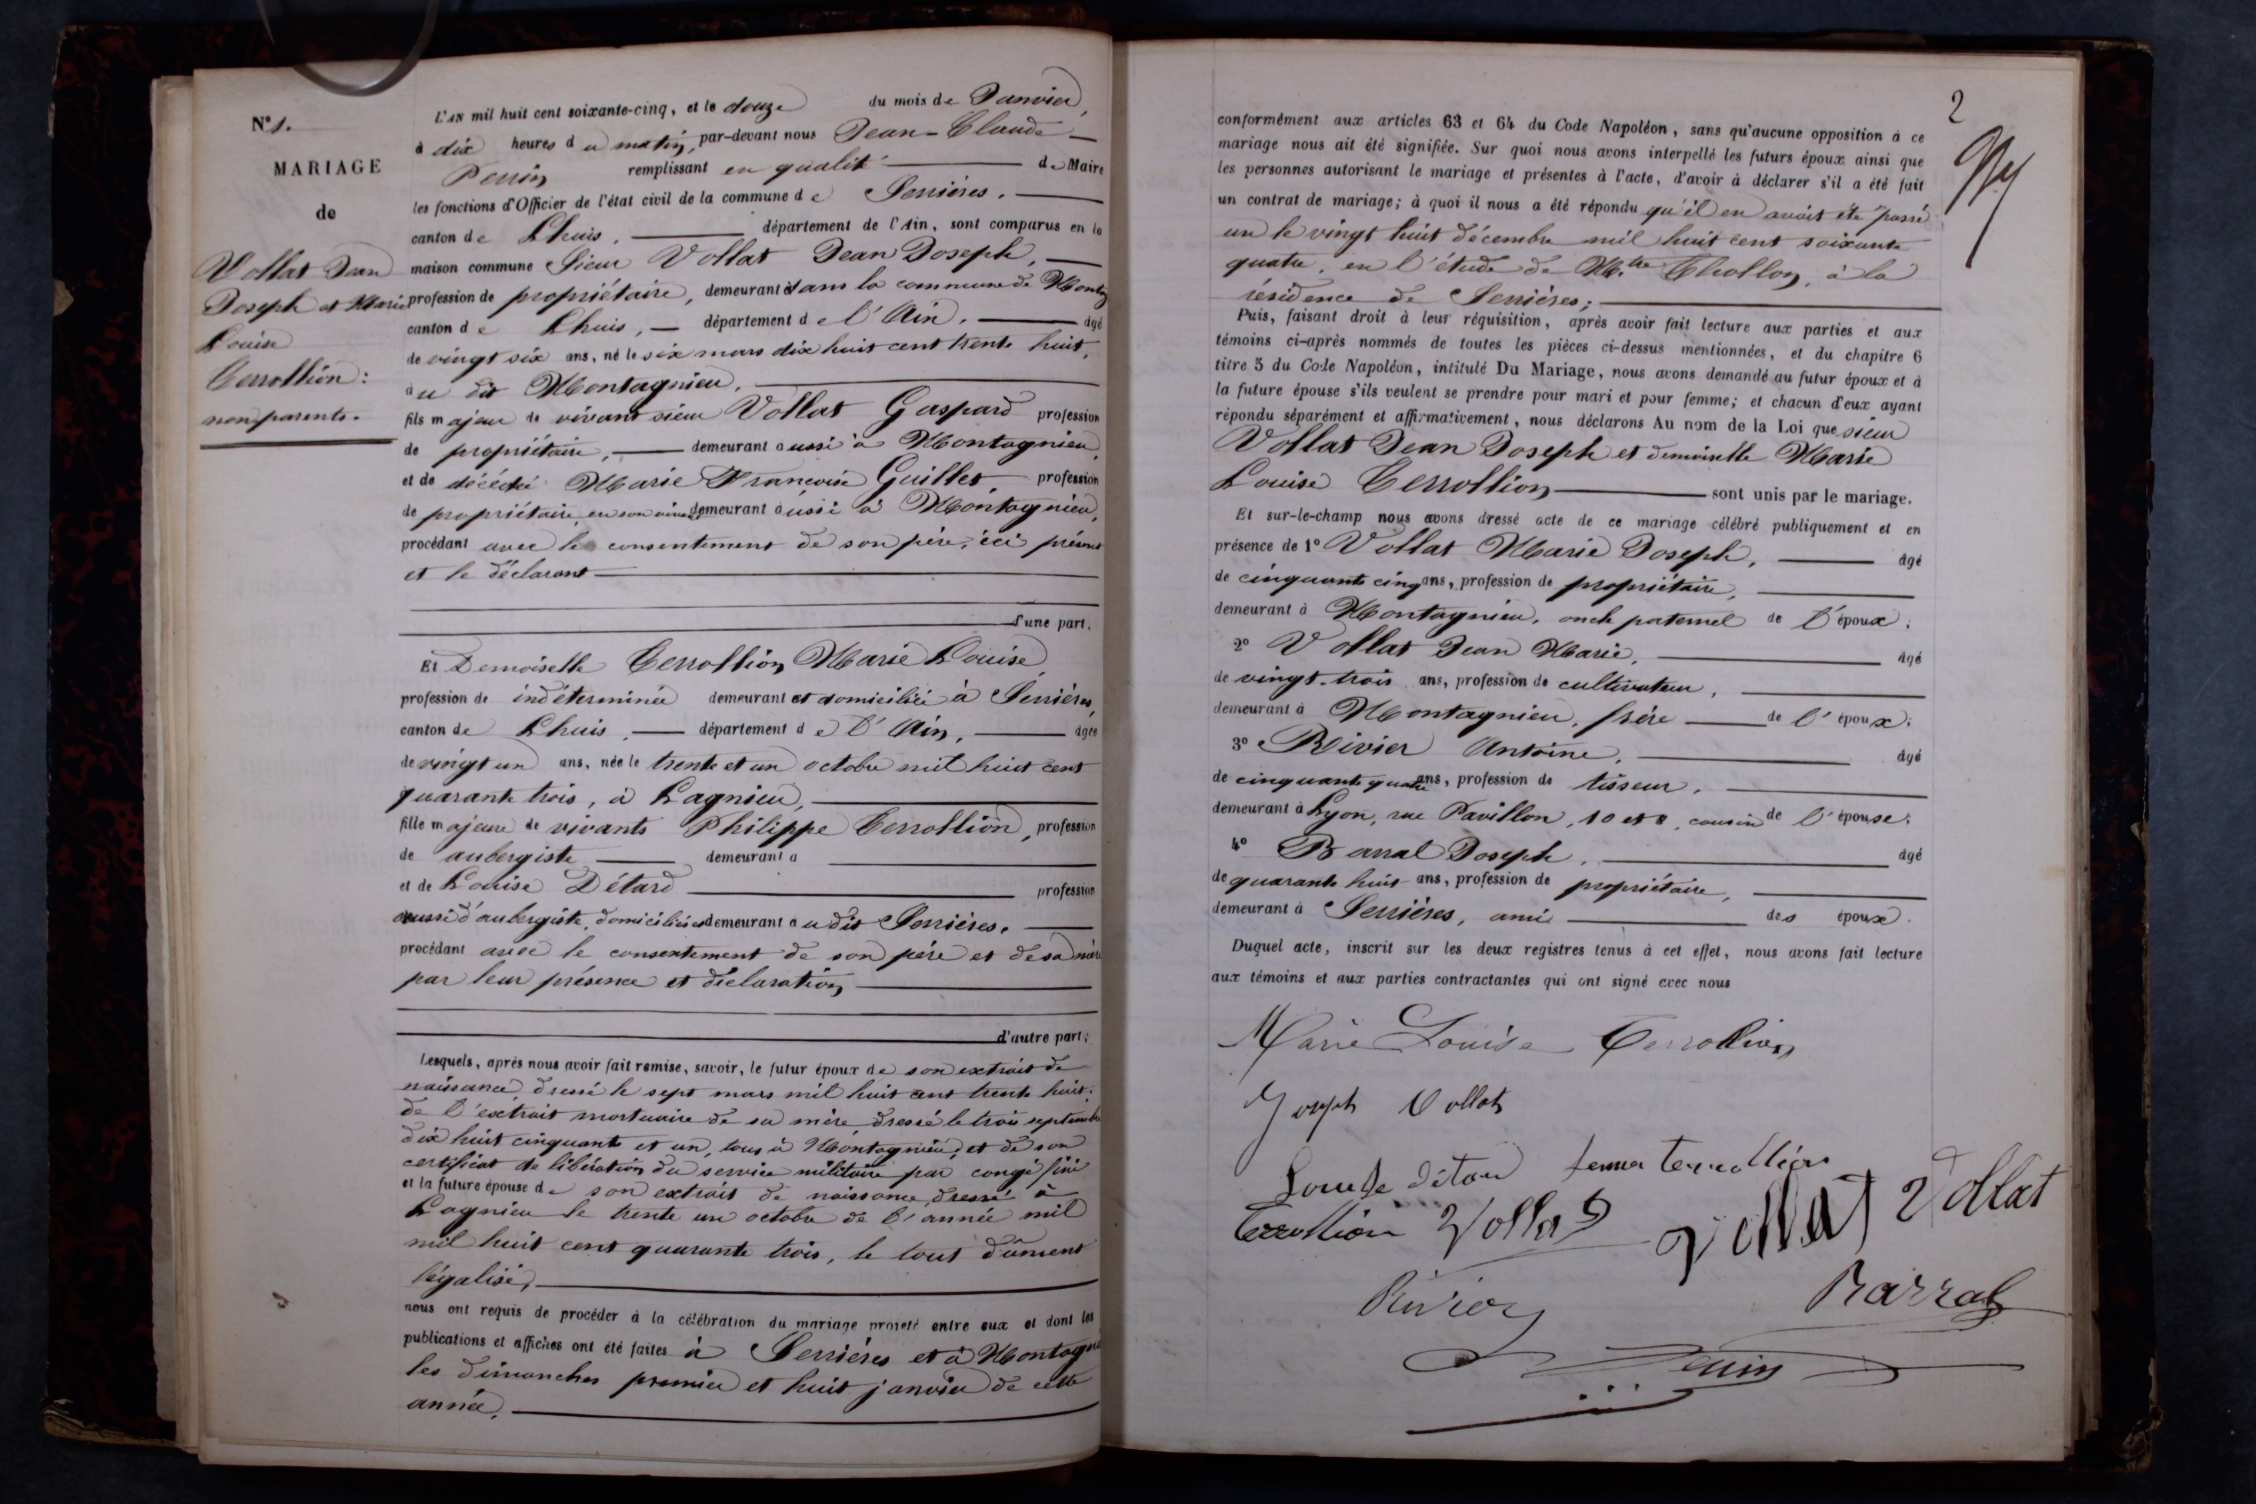 N° 1.
MARIAGE
de
Vollat Jean
Joseph et Marie
Louise
Cerrollion :
non parents.
L'AN mil huit cent soixante-cinq, et le douze du mois de Janvier,
à dix heures du matin, par-devant nous Jean-Claude
Perrin remplissant en qualité de Maire
les fonctions d'Officier de l'état civil de la commune de Serrières.
canton de Lhuis, département de l'Ain, sont comparus en la
maison commune Sieur Vollat Jean Joseph,
profession de propriétaire, demeurant dans la commune de Montag
canton de Lhuis, département de l'Ain. âgé
de vingt six ans, né le six mars dix huit cent trente huit,
au dit Montagnieu,
fils majeur de vivant sieur Vollat Gaspard profession
de propriétaire, demeurant aussi à Montagnieu,
et de décédée Marie Françoise Guillet profession
de propriétaire, en son vivant demeurant aussi à Montagnieu,
procédant avec le consentement de son père, ici présent
et le déclarant
d'une part.
Et Demoiselle Cerrollion Marie Louise
profession de indéterminée demeurant et domiciliée à Serrières,
canton de Lhuis, département de l'Ain, âgée
de vingt un ans, née le trente et un octobre mil huit cent
quarante trois, à Lagnieu,
fille majeure de vivants Philippe Cerrollion, profession
de aubergiste demeurant à
et de Louise Détard profession
aussi d'aubergiste, domiciliés et demeurant au dit Serrières.
procédant avec le consentement de son père et de sa mère
par leur présence et déclaration
d'autre part;
Lesquels, après nous avoir fait remise, savoir, le futur époux de son extrait de
naissance dressé le sept mars mil huit cent trente huit;
de l'extrait mortuaire de sa mère dressé le trois septembre
dix huit cinquante et un, tous à Montagnieu; et de son
certificat de libération du service militaire par congé fini
et la future épouse de son extrait de naissance dressé à
Lagnieu le trente un octobre de l'année mil
mil huit cent quarante trois, le tout dûment
légalisé,
nous ont requis de procéder à la célébration du mariage projeté entre eux et dont les
publications et affiches ont été faites à Serrières et à Montagni
les dimanches premier et huit janvier de cette
année.
2
conformément aux articles 63 et 64 du Code Napoléon, sans qu'aucune opposition à ce
mariage nous ait été signifiée. Sur quoi nous avons interpellé les futurs époux ainsi que
les personnes autorisant le mariage et présentes à l'acte, d'avoir à déclarer s'il a été fait
un contrat de mariage; à quoi il nous a été répondu qu'il en avait été passé
un le vingt huit décembre mil huit cent soixante
quatre, en l'étude de Me Chollon, à la
résidence de Serrières;
Puis, faisant droit à leur réquisition, après avoir fait lecture aux parties et aux
témoins ci-après nommés de toutes les pièces ci-dessus mentionnées, et du chapitre 6
titre 5 du Code Napoléon, intitulé Du Mariage, nous avons demandé au futur époux et à
la future épouse s'ils veulent se prendre pour mari et pour femme; et chacun d'eux ayant
répondu séparément et affirmativement, nous déclarons Au nom de la Loi que sieur
Vollat Jean Joseph et demoiselle Marie
Louise Cerrollion sont unis par le mariage.
Et sur-le-champ nous avons dressé acte de ce mariage célébré publiquement et en
présence de 1° Vollat Marie Joseph, âgé
de cinquante cinq ans, profession de propriétaire,
demeurant à Montagnieu, oncle paternel de l'époux;
2° Vollat Jean Marie, âgé
de vingt-trois ans, profession de cultivateur,
demeurant à Montagnieu, frère de l'époux;
3° Rivier Antoine, âgé
de cinquante quatre ans, profession de tisseur,
demeurant à Lyon, rue Pavillon, 10 et 8, cousin de l'épouse;
4° Barral Joseph, âgé
de quarante huit ans, profession de propriétaire,
demeurant à Serrières, ami des époux.
Duquel acte, inscrit sur les deux registres tenus à cet effet, nous avons fait lecture
aux témoins et aux parties contractantes qui ont signé avec nous
Marie Louise Cerrollion
Joseph Vollat
Louise détard femme terrollion
Cerrollion Vollat Vollat Vollat
Rivier Barral
Perrin